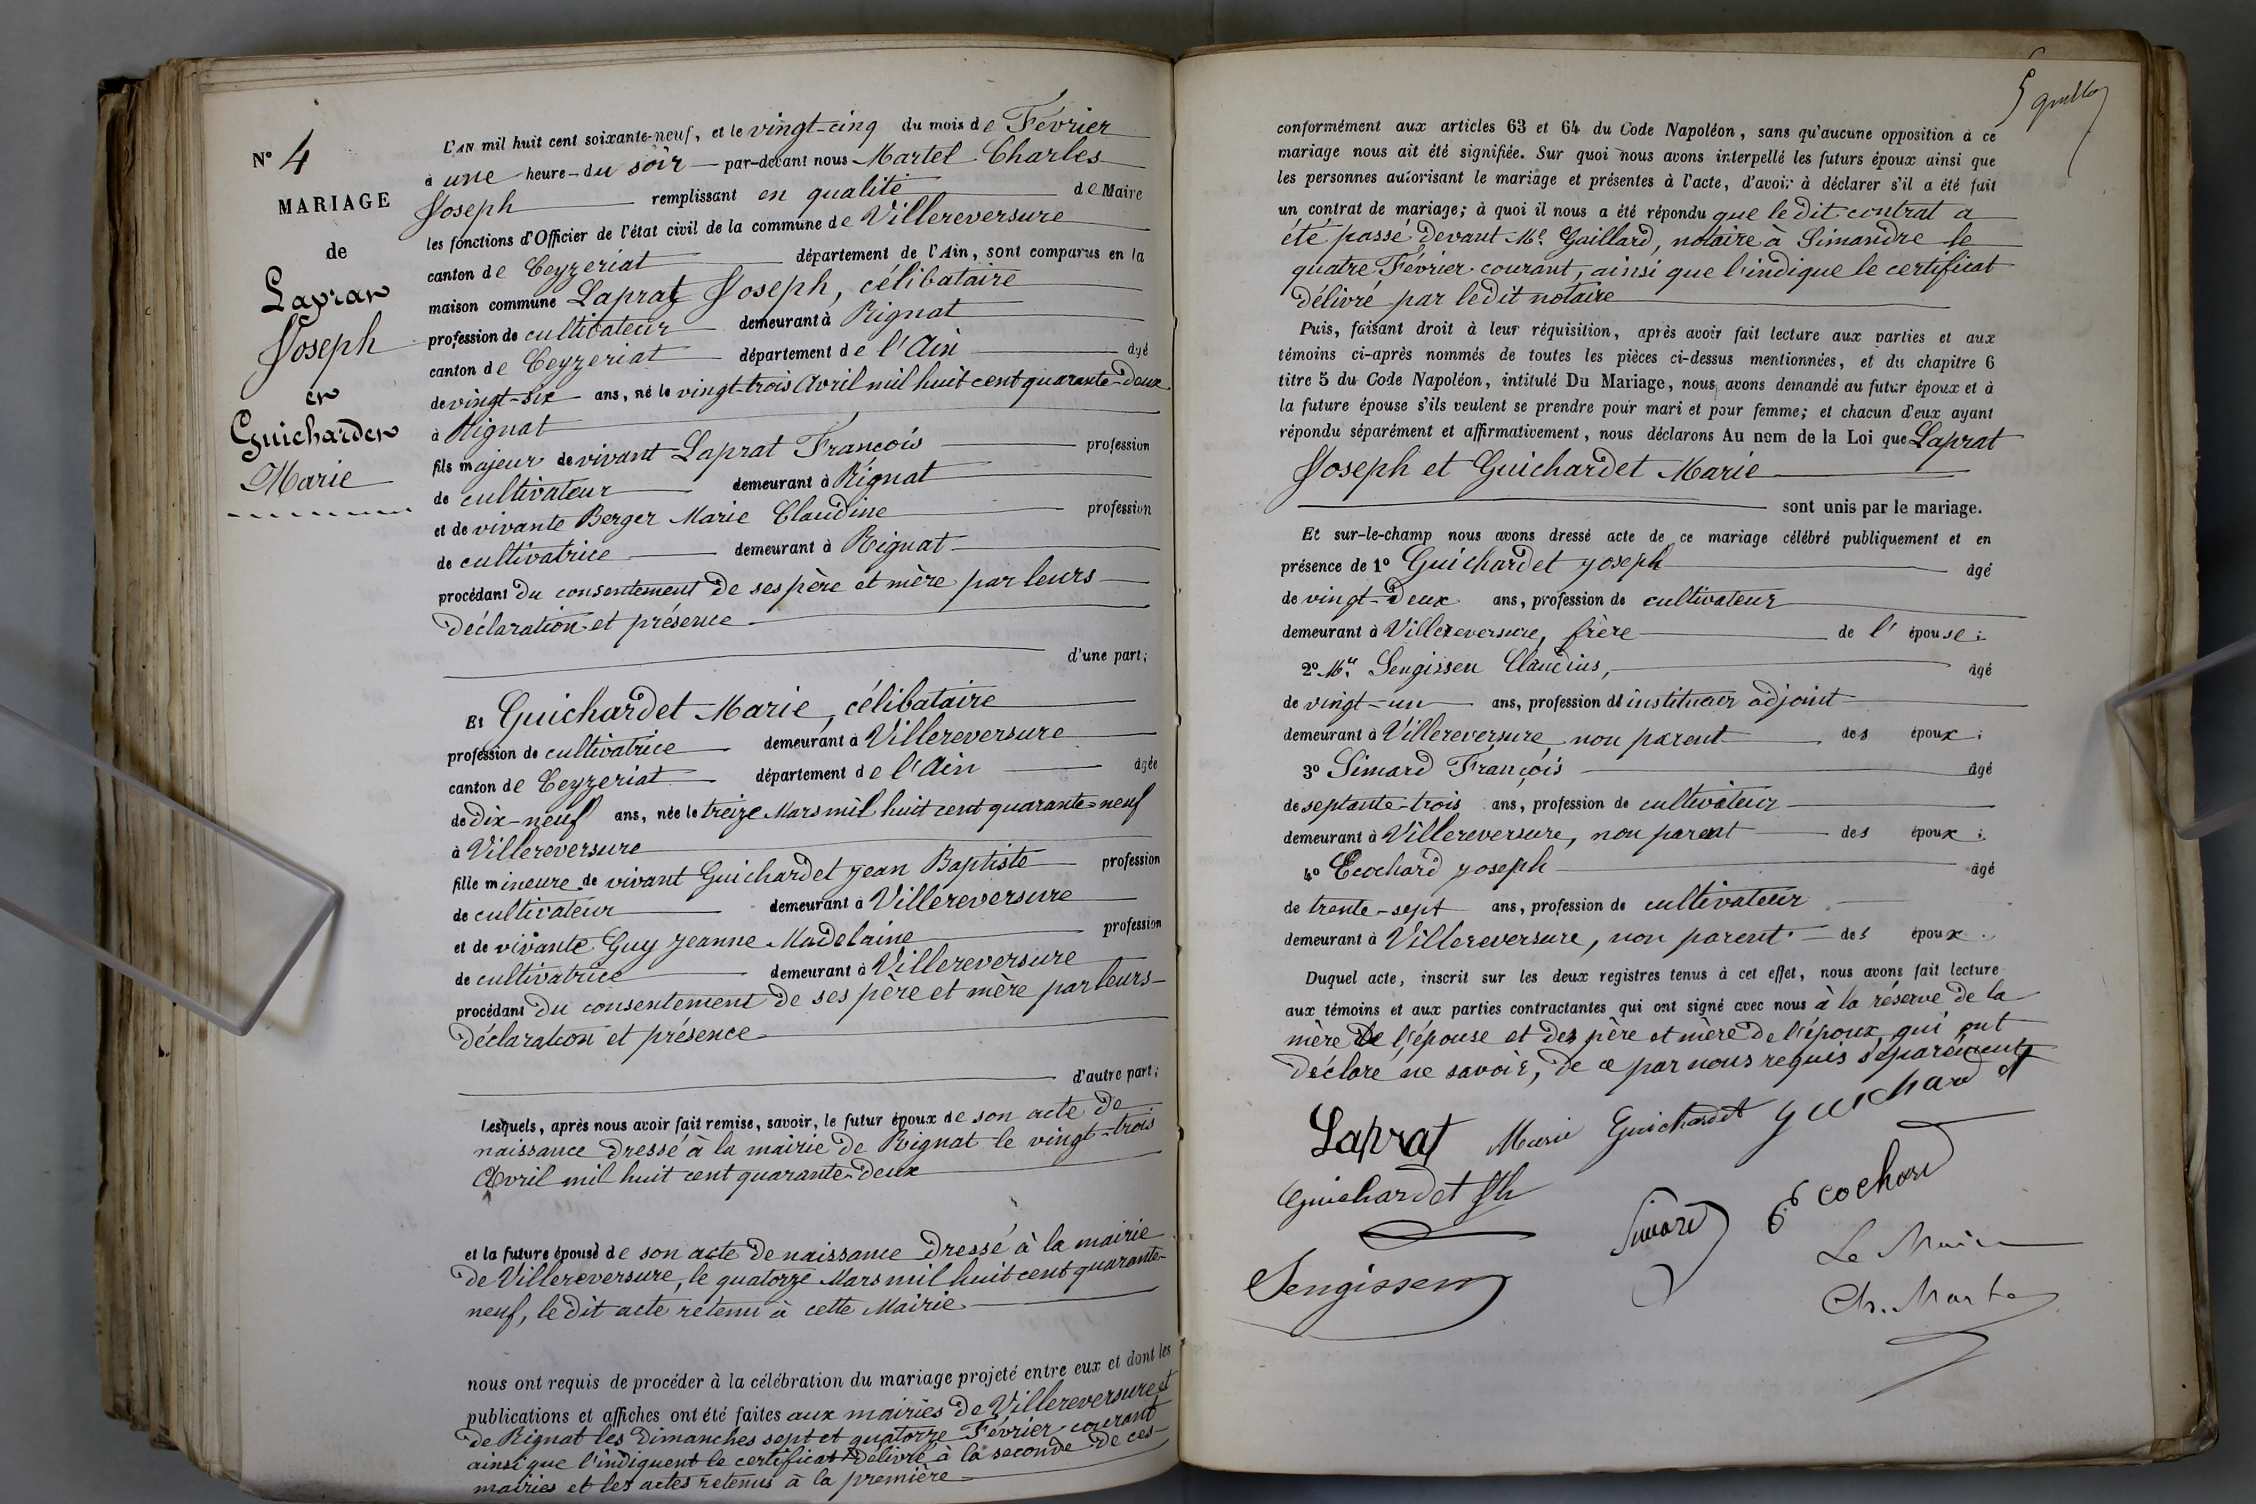 N° 4
MARIAGE
de
Laprat
Joseph
et
Guichardet
Marie
L'AN mil huit cent soixante-neuf, et le vingt-cinq du mois de Février
à une heure du soir par-devant nous Martel Charles
Joseph remplissant en qualité de Maire
les fonctions d'Officier de l'état civil de la commune de Villereversure
canton de Ceyzeriat département de l'Ain, sont comparus en la
maison commune Laprat Joseph, célibataire
profession de cultivateur demeurant à Rignat
canton de Ceyzeriat département de l'Ain âgé
de vingt-six ans, né le vingt-trois Avril mil huit cent quarante-deux
à Rignat
fils majeur de vivant Laprat François profession
de cultivateur demeurant à Rignat
et de vivante Berger Marie Claudine profession
de cultivatrice demeurant à Rignat
procédant du consentement de ses père et mère par leurs
déclaration et présence
d'une part;
Et Guichardet Marie, célibataire
profession de cultivatrice demeurant à Villereversure
canton de Ceyzeriat département de l'Ain âgée
de dix-neuf ans, née le treize Mars mil huit cent quarante-neuf
à Villereversure
fille mineure de vivant Guichardet Jean Baptiste profession
de cultivateur demeurant à Villereversure
et de vivante Guy Jeanne Madelaine profession
de cultivatrice demeurant à Villereversure
procédant du consentement de ses père et mère par leurs
déclaration et présence
d'autre part;
Lesquels, après nous avoir fait remise, savoir, le futur époux de son acte de
naissance dressé à la mairie de Rignat le vingt-trois
Avril mil huit cent quarante-deux
et la future épouse de son acte de naissance dressé à la mairie
de Villereversure, le quatorze Mars mil huit cent quarante-
neuf, le dit acte retenu à cette Mairie
nous ont requis de procéder à la célébration du mariage projeté entre eux et dont les
publications et affiches ont été faites aux mairies de Villereversure et
de Rignat les Dimanches sept et quatorze Février courant
ainsi que l'indiquent le certificat délivré à la seconde de ces
mairies et les actes retenus à la première
5
conformément aux articles 63 et 64 du Code Napoléon, sans qu'aucune opposition à ce
mariage nous ait été signifiée. Sur quoi nous avons interpellé les futurs époux ainsi que
les personnes autorisant le mariage et présentes à l'acte, d'avoir à déclarer s'il a été fait
un contrat de mariage; à quoi il nous a été répondu que le dit contrat a
été passé devant Me Gaillard, notaire à Simandre le
quatre Février courant, ainsi que l'indique le certificat
délivré par le dit notaire
Puis, faisant droit à leur réquisition, après avoir fait lecture aux parties et aux
témoins ci-après nommés de toutes les pièces ci-dessus mentionnées, et du chapitre 6
titre 5 du Code Napoléon, intitulé Du Mariage, nous avons demandé au futur époux et à
la future épouse s'ils veulent se prendre pour mari et pour femme; et chacun d'eux ayant
répondu séparément et affirmativement, nous déclarons Au nom de la Loi que Laprat
Joseph et Guichardet Marie
sont unis par le mariage.
Et sur-le-champ nous avons dressé acte de ce mariage célébré publiquement et en
présence de 1° Guichardet Joseph âgé
de vingt-deux ans, profession de cultivateur
demeurant à Villereversure, frère de l'épouse;
2° Mr. Sengissen Claudius, âgé
de vingt-un ans, profession d'instituteur adjoint
demeurant à Villereversure non parent des époux;
3° Simard François âgé
de septante-trois ans, profession de cultivateur
demeurant à Villereversure, non parent des époux;
4° Ecochard Joseph âgé
de trente-sept ans, profession de cultivateur
demeurant à Villereversure, non parent des époux.
Duquel acte, inscrit sur les deux registres tenus à cet effet, nous avons fait lecture
aux témoins et aux parties contractantes qui ont signé avec nous à la réserve de la
mère de l'épouse et des père et mère de l'époux qui ont
déclaré ne savoir, de ce par nous requis séparément
Laprat Marie Guichardet guichardet
Guichardet Jh
Simard Ecochard
Sengissen
Le Maire
Ch. Martel